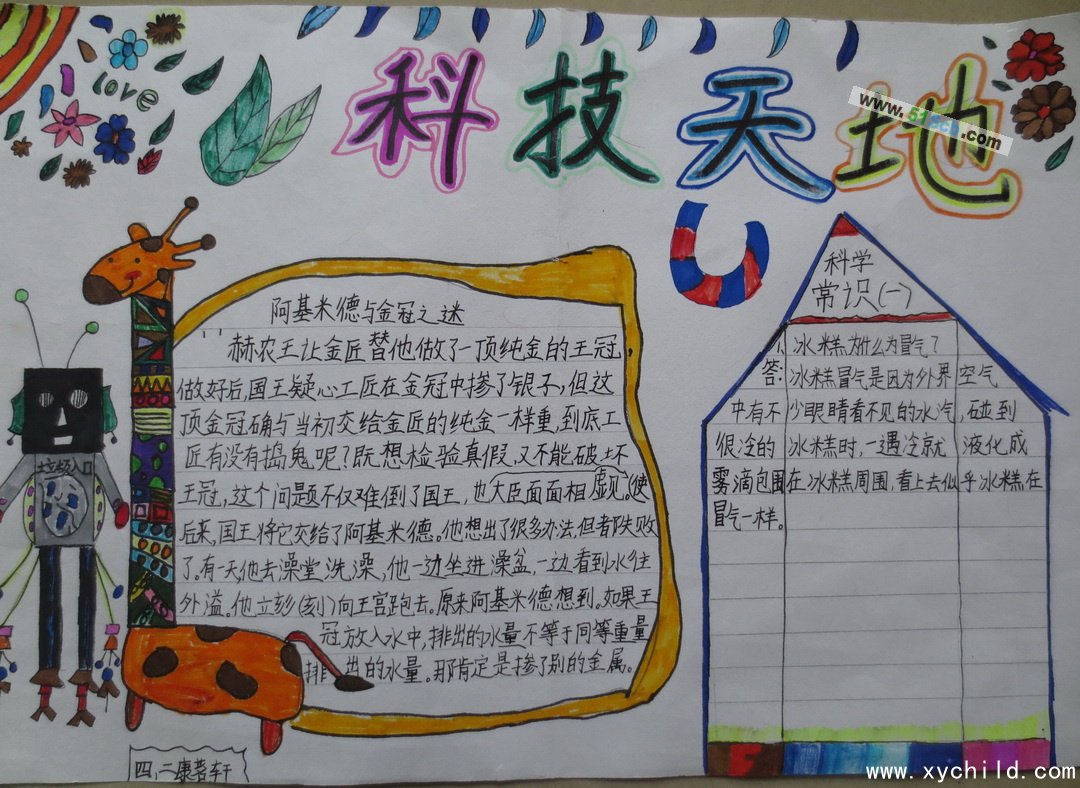 love
科技天地
www.51ccb.com
阿基米德与金冠之迷
赫农王让金匠替他做了一顶纯金的王冠,
做好后,国王疑心工匠在金冠中掺了银子,但这
顶金冠确与当初交给金匠的纯金一样重,到底工
匠有没有捣鬼呢?既想检验真假,又不能破坏
王冠,这个问题不仅难倒了国王,也大臣面面相虚见。使
后来,国王将它交给了阿基米德。他想出了很多办法,但都失败
了。有一天他去澡堂洗澡,他一边坐进澡盆,一边看到水往
外溢。他立刻(刻)向王宫跑去。原来阿基米德想到。如果王
冠放入水中,排出的水量不等于同等重量
排出的水量。那肯定是掺了别的金属。
垃圾入口
科学
常识(一)
1、冰糕为什么冒气?
答:冰糕冒气是因为外界空气
中有不少眼睛看不见的水汽,碰到
很冷的冰糕时,一遇冷就液化成
雾滴包围在冰糕周围,看上去似乎冰糕在
冒气一样。
四、二康轩
www.xychild.com